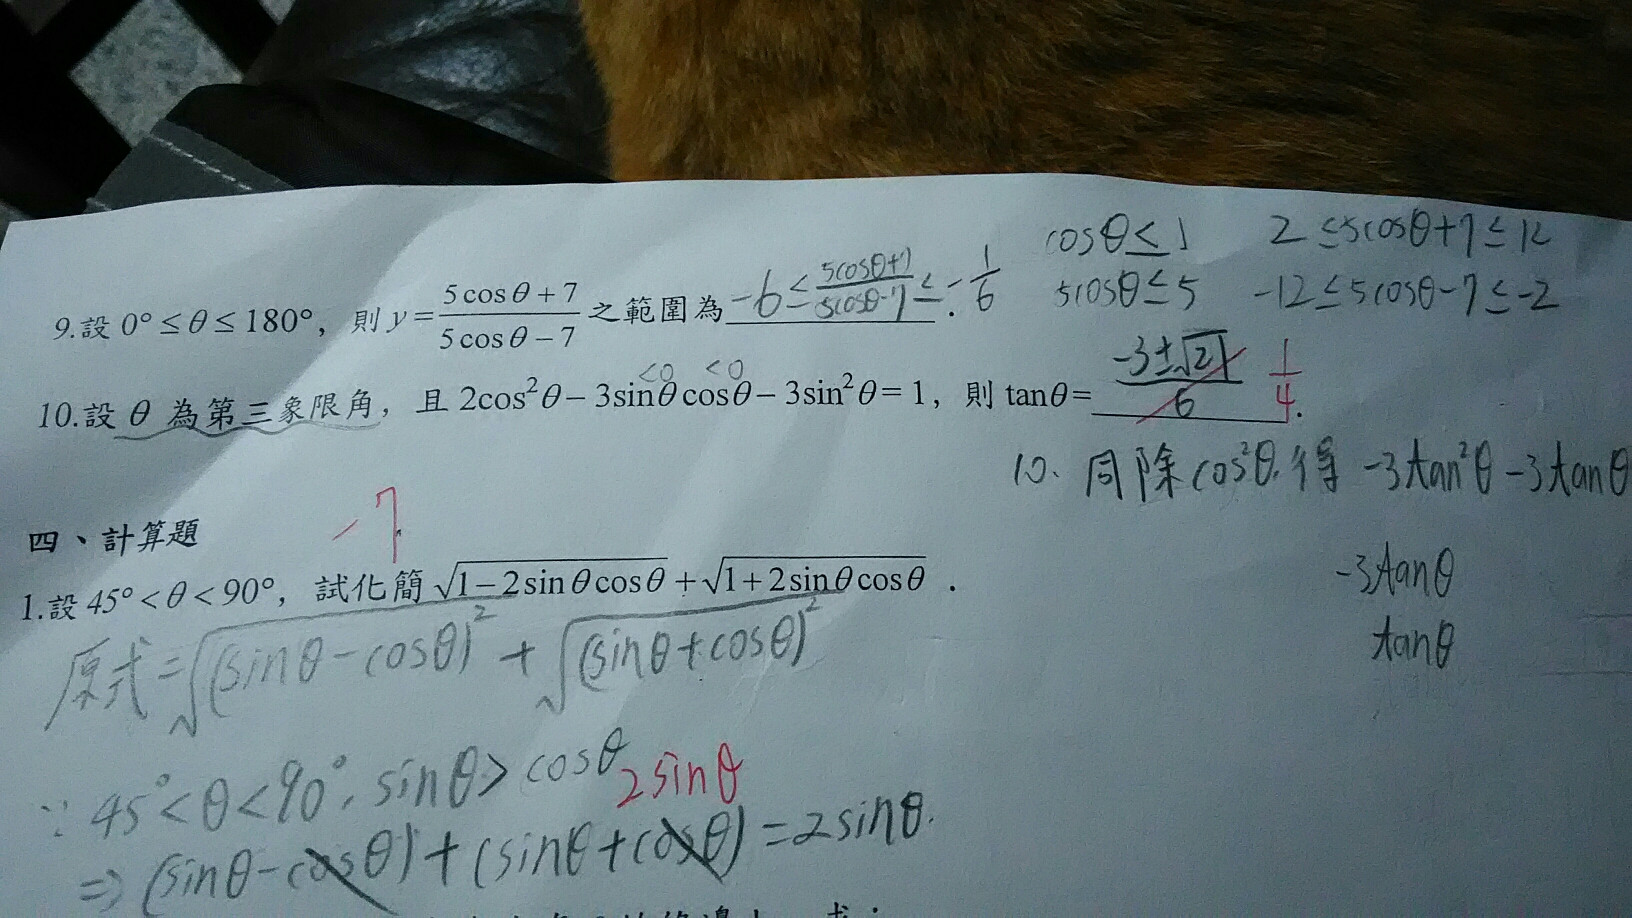 cosθ≤1 2≤5cosθ+7≤12
9.設 0°≤θ≤180°, 則 y=\frac{5cosθ+7}{5cosθ-7} 之範圍為 -6≤\frac{5cosθ+7}{5cosθ-7}≤-\frac{1}{6}. 5cosθ≤5 -12≤5cosθ-7≤-2
<0 <0
10.設 θ 為第三象限角, 且 2cos²θ-3sinθcosθ-3sin²θ=1, 則 tanθ= \frac{-3±√21}{6} \frac{1}{4}.
10、同除cos²θ, 得 -3tan²θ-3tanθ
-7
四、計算題
-3tanθ
1.設 45°<θ<90°, 試化簡 √(1-2sinθcosθ)+√(1+2sinθcosθ).
tanθ
原式=√(sinθ-cosθ)²+√(sinθ+cosθ)²
∵45°<θ<90°, sinθ>cosθ 2sinθ
⇒(sinθ-cosθ)+(sinθ+cosθ)=2sinθ.